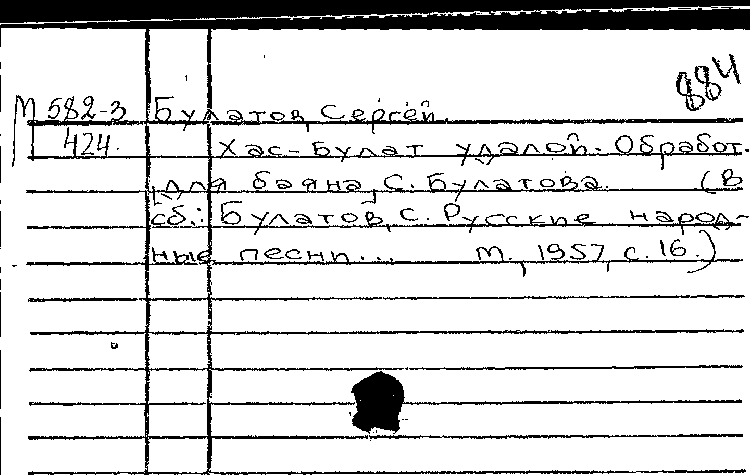 884
М 582-3 Булатов, Сергей.
424. Хас-Булат удалой. Обработ.
для баяна С. Булатова. (В
сб.: Булатов, С. Русские народ-
ные песни... М., 1957, с. 16.)